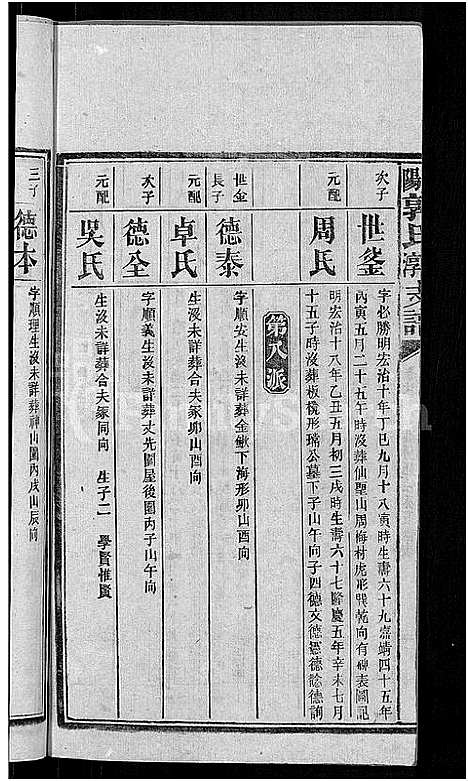 陽郭氏瀏支譜
次子 世鋈 字必勝明宏治十年丁巳九月十八寅時生壽六十九嘉靖四十五年
丙寅五月二十五午時沒葬仙聖山周梅村虎形巽乾向有碑表圖記
元配 周氏 明宏治十八年乙丑五月初三戌時生壽六十七隆慶五年辛未七月
十五子時沒葬板櫈形瑞公墓下子山午向子四德文德憲德諗德詢
第八派
世金長子 德泰 字順安生沒未詳葬金鍬下海形卯山酉向
元配 卓氏 生沒未詳葬合夫冢卯山酉向
次子 德全 字順義生沒未詳葬丈先圍屋後圍內子山午向
元配 吳氏 生沒未詳葬合夫冢同向 生子二 學賢惟賢
三子 德本 字順理生沒未詳葬神山圍丙戌山辰向